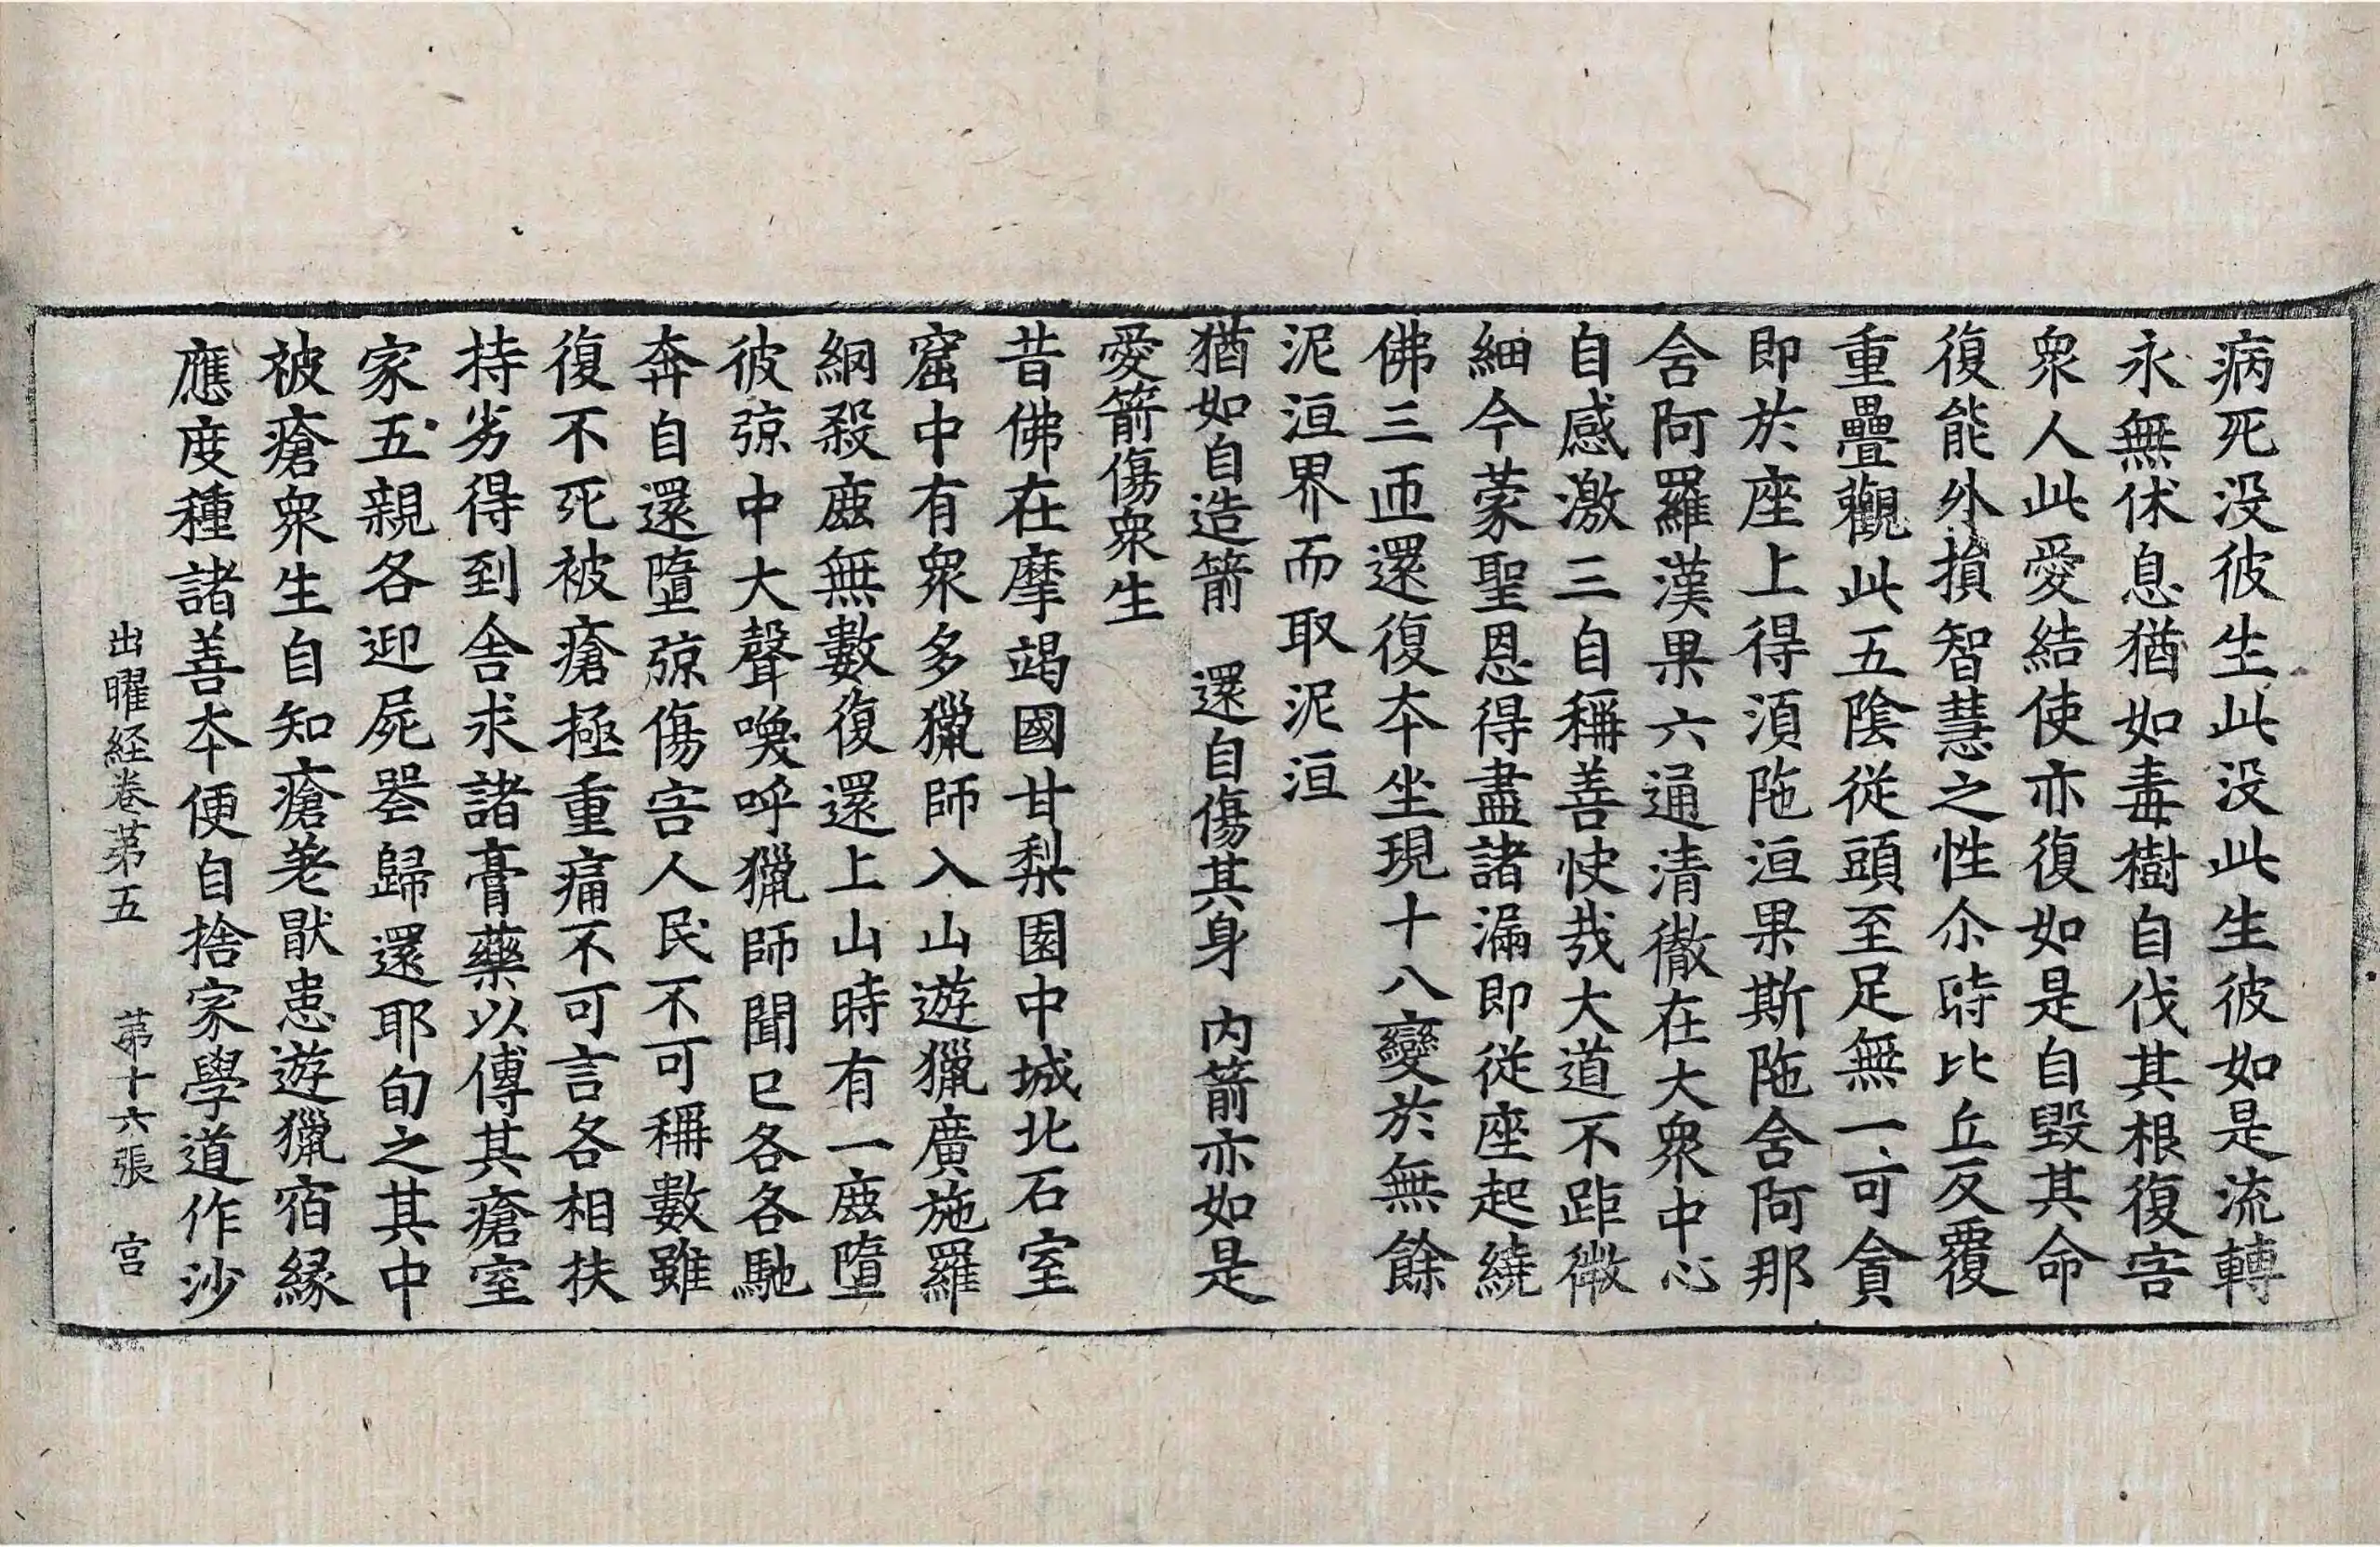 病死没彼生此没此生彼如是流轉
永無休息猶如毒樹自伐其根復害
衆人此愛結使亦復如是自毀其命
復能外損智慧之性尒時比丘反覆
重疊觀此五陰從頭至足無一可貪
即於座上得湏陁洹果斯陁含阿那
含阿羅漢果六通清徹在大衆中心
自感激三自稱善快哉大道不距微
細今蒙聖恩得盡諸漏即從座起繞
佛三匝還復夲坐現十八變於無餘
泥洹界而取泥洹
猶如自造箭　還自傷其身　内箭亦如是
愛箭傷衆生
昔佛在摩竭國甘梨園中城北石室
窟中有衆多獵師入山遊獵廣施羅
網殺鹿無數復還上山時有一鹿墮
彼弶中大聲喚呼獵師聞已各各馳
奔自還墮弶傷害人民不可稱數雖
復不死被瘡極重痛不可言各相扶
持劣得到舍求諸膏藥以傅其瘡室
家五親各迎屍喪歸還耶旬之其中
被瘡衆生自知瘡差猒患遊獵宿緣
應度種諸善夲便自捨家學道作沙
出曜経卷苐五　苐十六張　宫